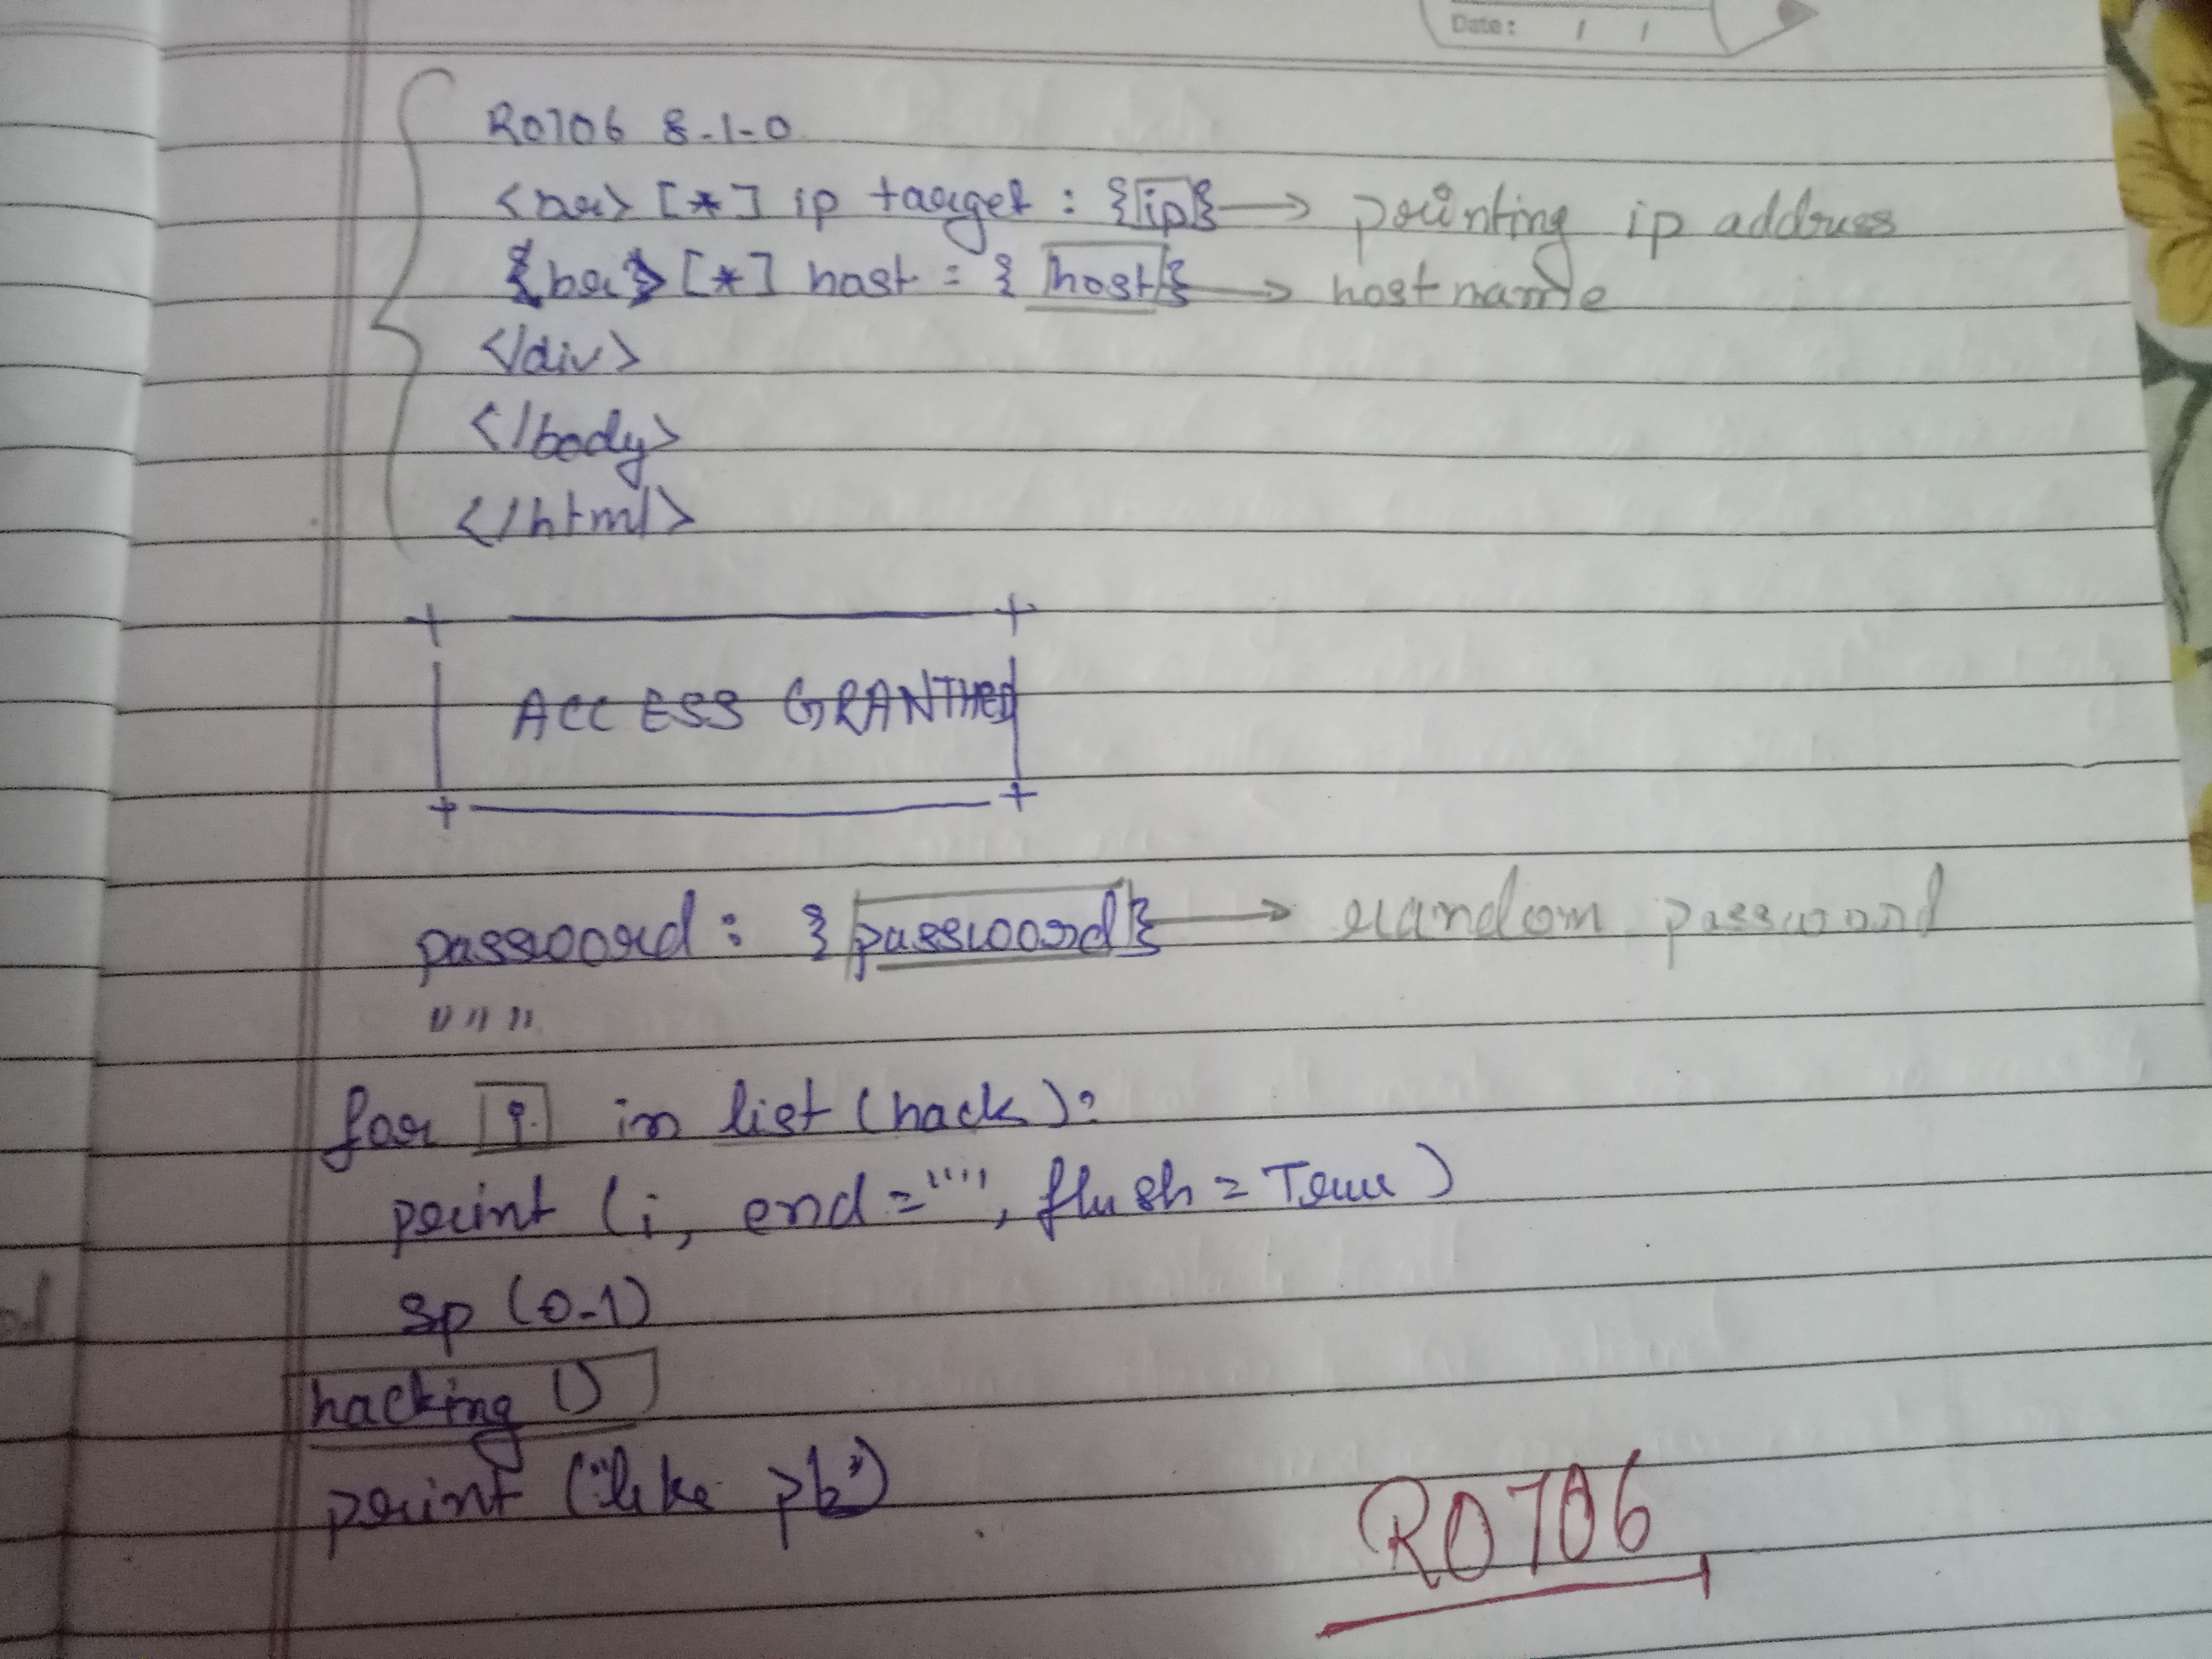 Date: / /
R0706 8.1.0
<br> [*] ip target : {ip} → printing ip address
{br> [*] host = {host} → host name
</div>
</body>
</html>
+ ——— +
| ACCESS GRANTHED |
+ ——— +
password : {password} → random password
"""
for i in list (hack):
print (i, end="", flush=True)
sp (0.1)
hacking ()
print ("like pb")
R0706